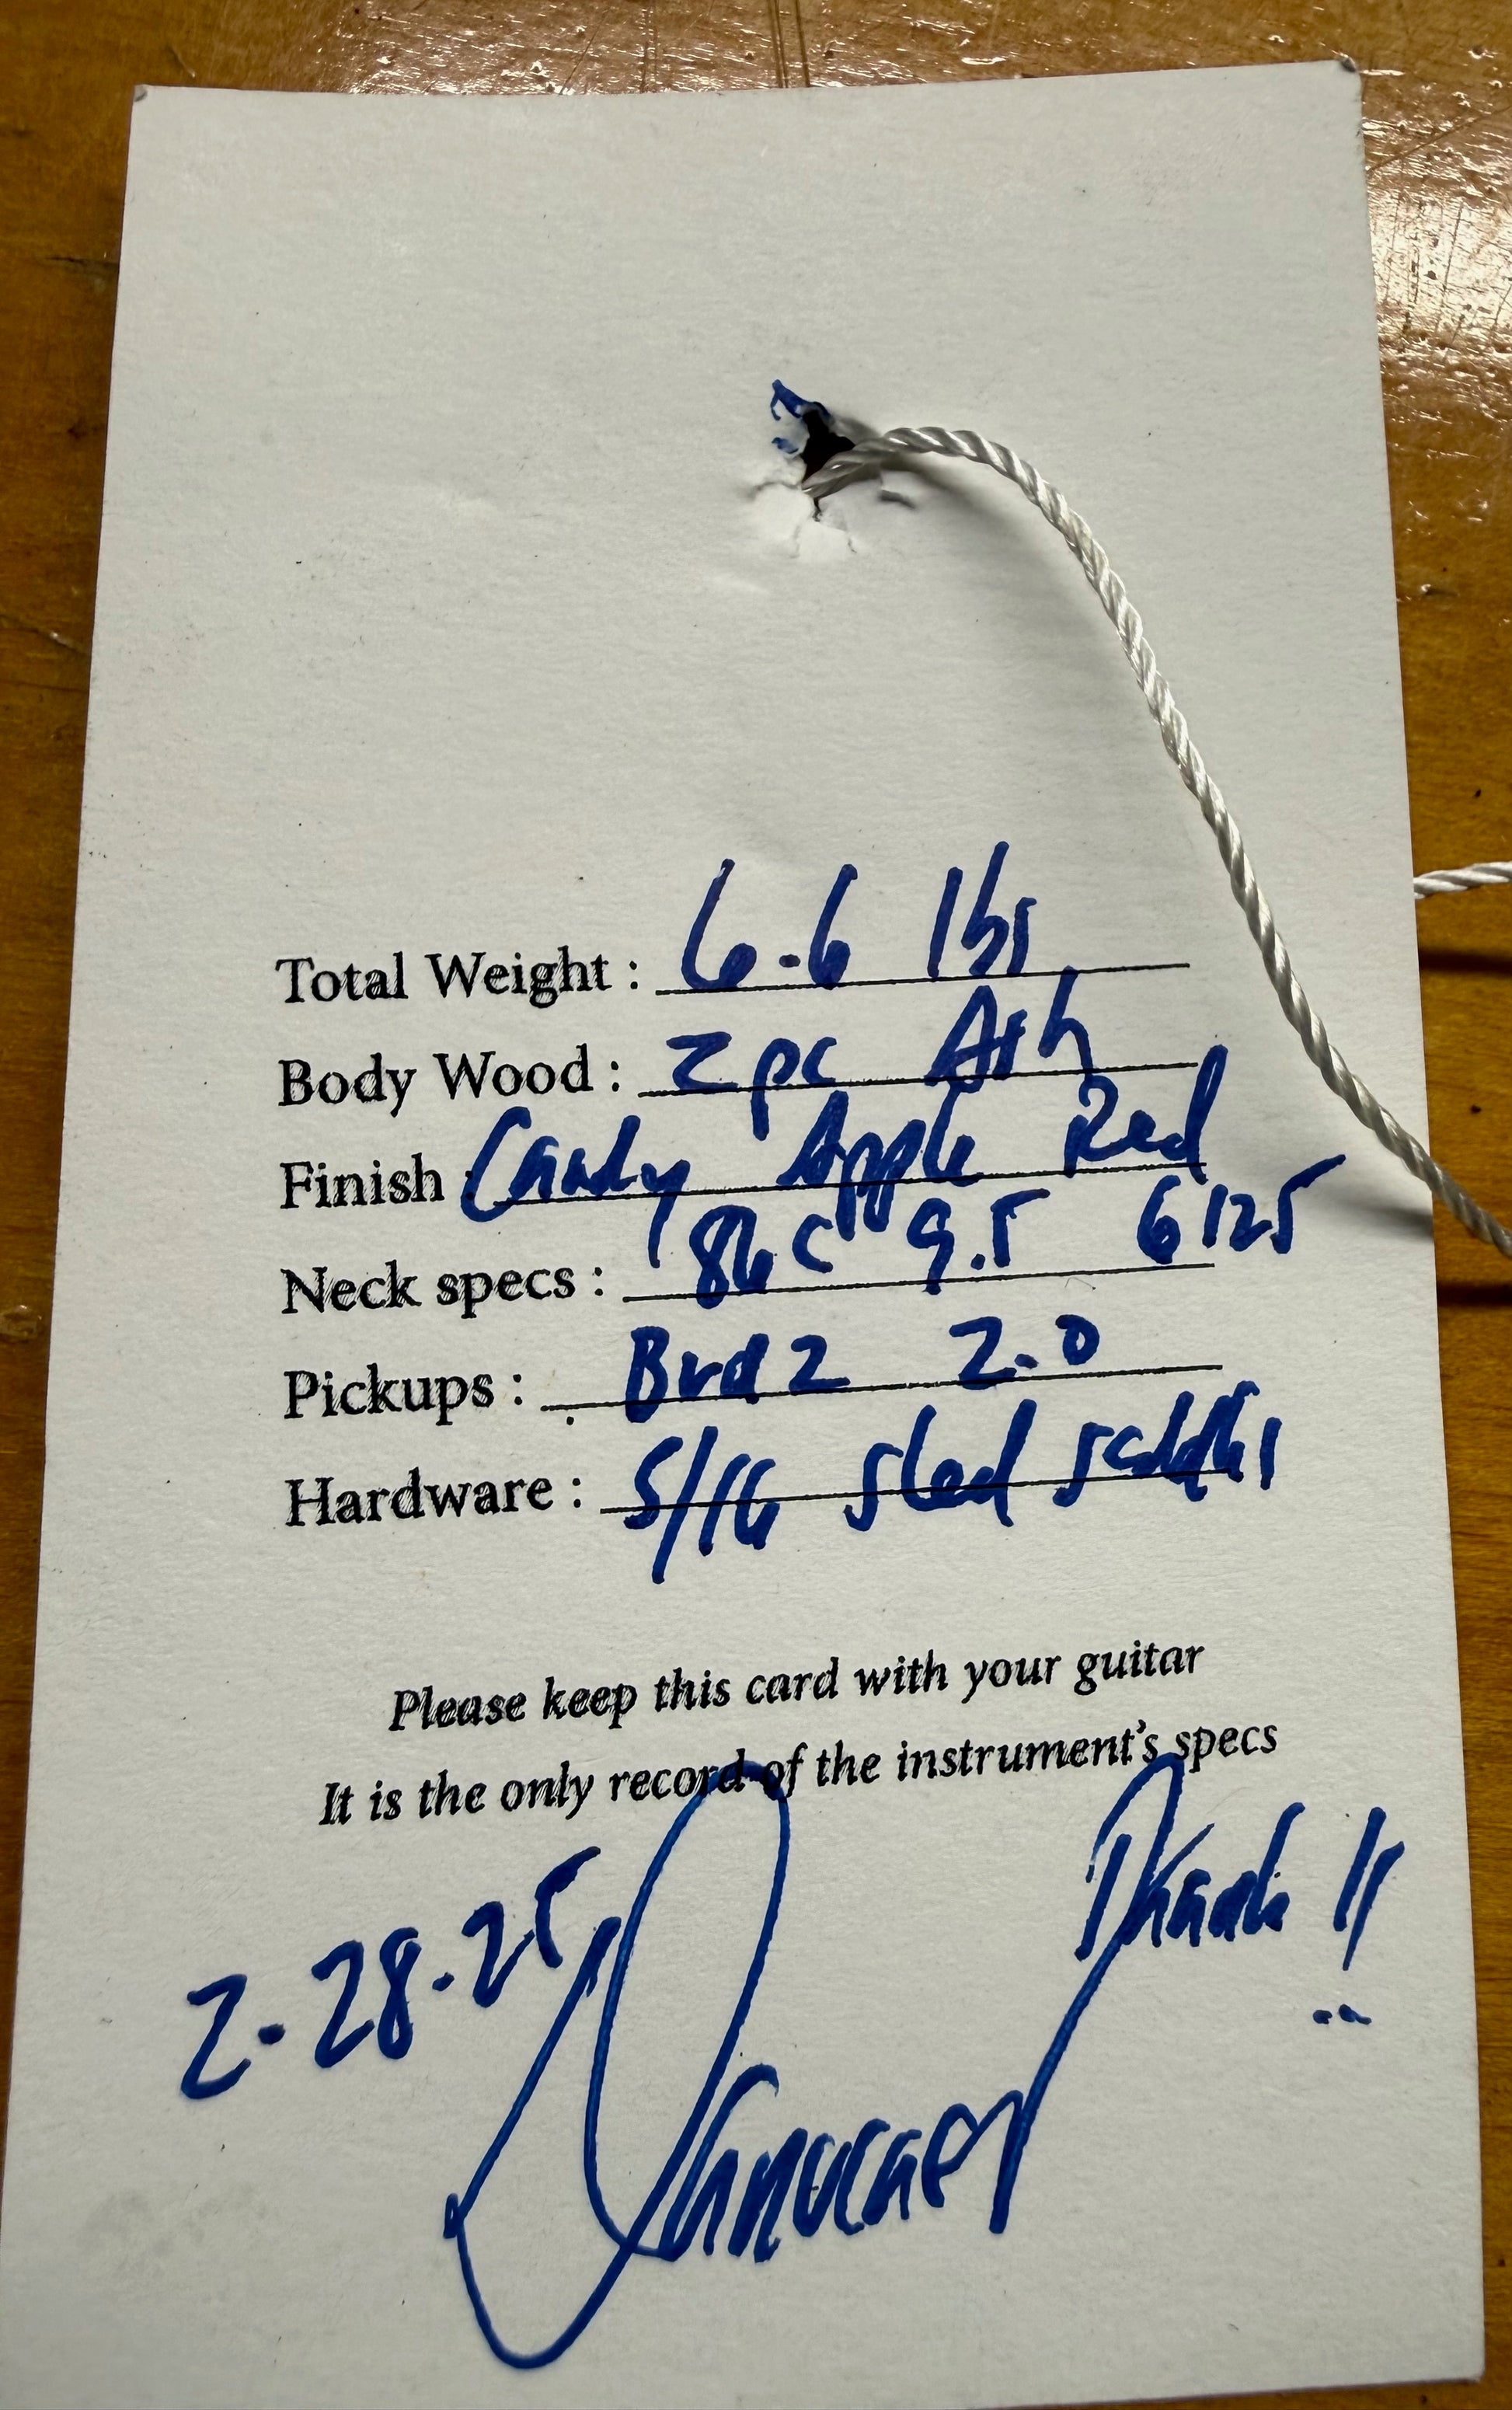 Total Weight : 6.6 lbs
Body Wood : 2 pc Ash
Finish : Candy Apple Red
Neck specs : '86 C 9.5 6125
Pickups : Brd2 2.0
Hardware : 5/16 Steel saddles
Please keep this card with your guitar
It is the only record of the instrument's specs
Thanks !!
2-28-25